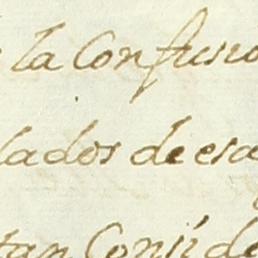 la Confusio
lados de esa
tan Conside